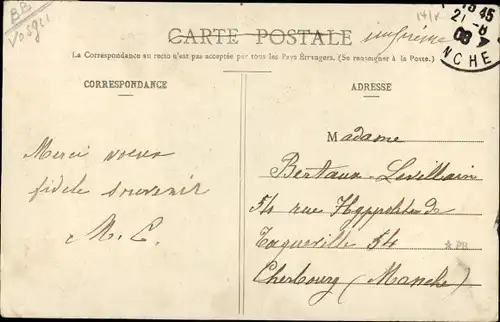 BB
Vosges
CARTE POSTALE
La Correspondance au recto n'est pas acceptée par tous les Pays Étrangers. (Se renseigner à la Poste.)
45
21 - 8
08
NCHE
CORRESPONDANCE
Merci
fidele souvenir
M. L.
ADRESSE
Madame
Bertaux-Levillain
54 rue Hyppolite de
Toqueville 54
Cherbourg (Manche)
* PB